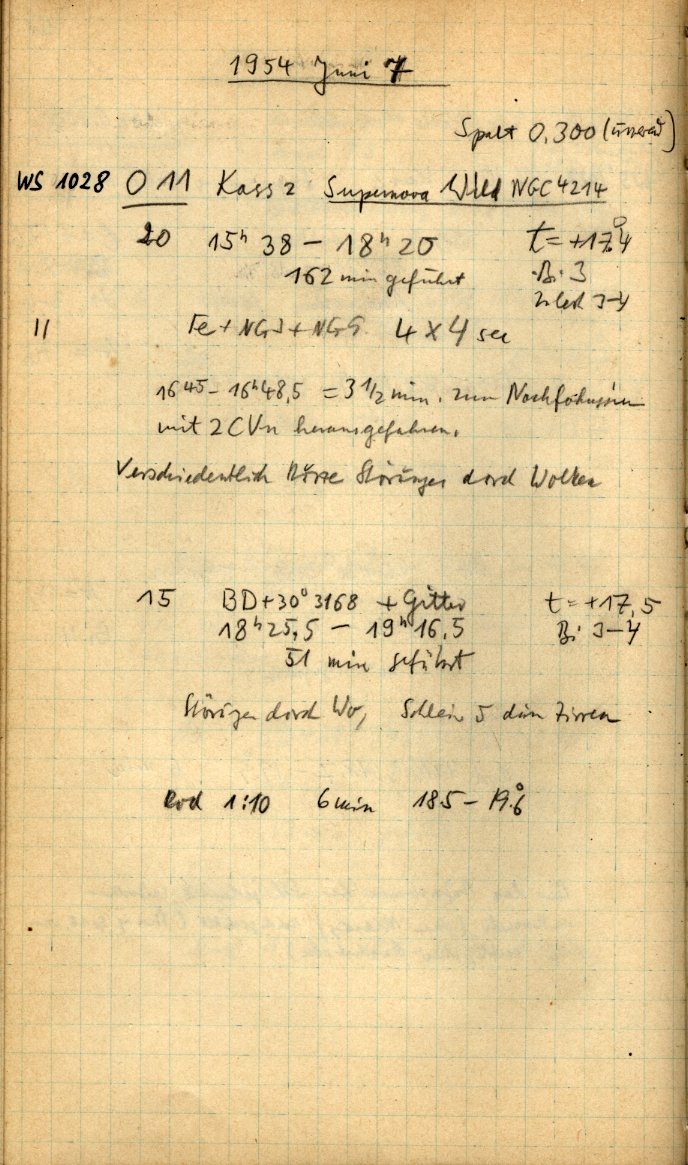 1954 Juni 7
Spalt 0,300
WS 1028 O 11 Kass 2 Supernova Wild NGC 4214
20 15ʰ 38 – 18ʰ 20 t = +17.°4
162 min geführt Bi 3
3–4
11 Fe + + 4 × 4 sec
16 45 – 16ʰ48,5 = 3 1/2 min. zum Nachfokussieren
mit 2 CVn herausgefahren.
Verschiedentlich Störungen durch Wolken
15 BD+30° 3168 + Gitter t = +17,5
18ʰ25,5 – 19ʰ16,5 Bi 3–4
51 min geführt
Störungen durch Wo, Zirren
Rod 1:10 6 min 18.5 – 19.°6